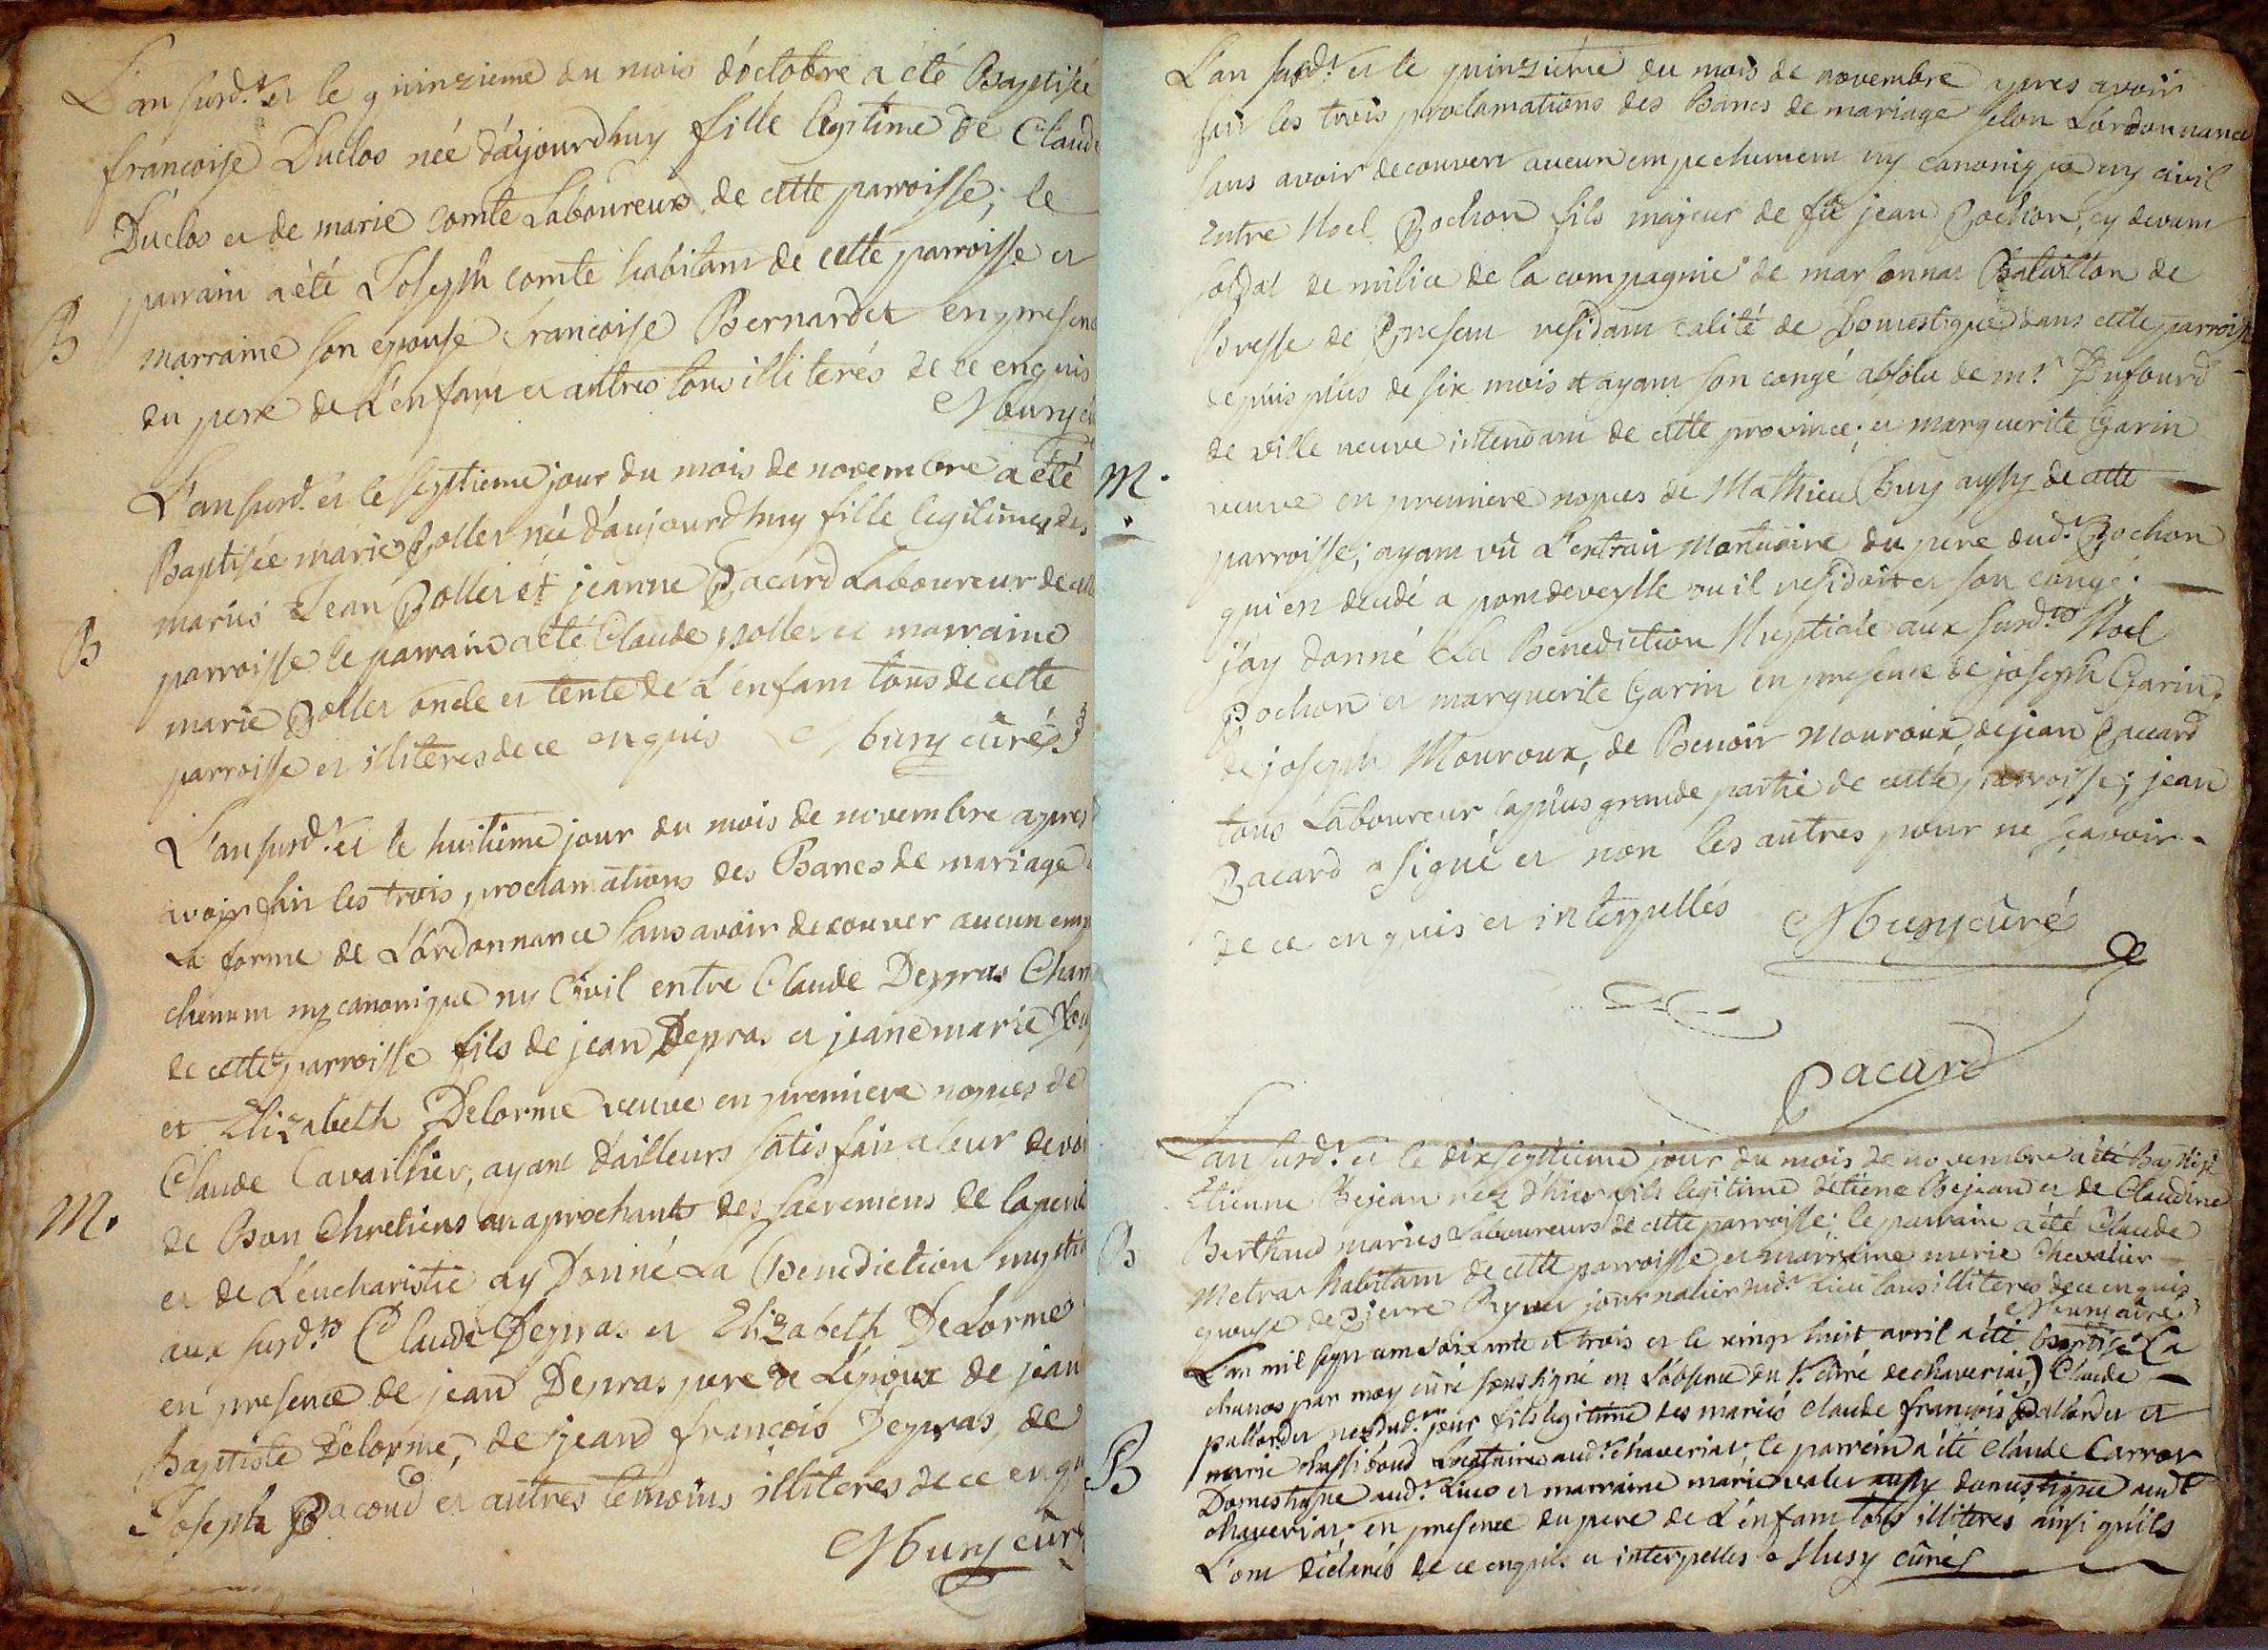 L'an susd.t et le quinzieme du mois d'octobre a été Baptisée
francoise Duclos née d'aujourdhuy fille legitime de Claude
Duclos et de marie comte Laboureurs de cette parroisse; le
parrain a été Joseph comte habitant de cette parroisse et
B
marraine son epouse francoise Bernardet en presen
du pere de L'enfant et autres tous illiterés de ce enquis
L'an susd.t et le septieme jour du mois de novembre a été
Baptisée marie Pollet née d'aujourdhuy fille legitime des
mariés Jean Pollet et jeanne Pacard Laboureur de
B
parroisse le parrain a été Claude pollet et marraine
marie Pollet oncle et tente de L'enfant tous de cette
parroisse et illiteres de ce enquis curé
L'an susd.t et le huitieme jour du mois de novembre apres
avoir fait les trois proclamations des Bancs de mariage
La forme de L'ordonnance sans avoir decouver aucun emp
chement ny canonique ny Civil entre Claude Depras
de cette parroisse fils de jean Depras et jeane marie
et Elizabeth Delorme veuve en premiere nopces de
Claude Cavaillier, ayant d'ailleurs satisfait a leur devoi
M.
de Bon Chretiens en aprochant des sacremens de la peni
et de L'eucharistie ay Donné La Benediction nuptia
aux susd.ts Claude Depras et Elizabeth DeLorme
en presence de jean Depras pere de L'epoux de jean
Baptiste Delorme, de jean francois Depras, de
Joseph Pacoud et autres temoins illiteres de ce enqui
L'an susd.t et le quinzieme du mois de novembre apres avoir
fait les trois proclamations des Bancs de mariage selon L'ordonnance
sans avoir decouvert aucun empechement ny canonique ny civil
entre Noel Pochon fils majeur de fû jean Pochon, cy devant
soldat de milice de la compagnie de marsonnas Bataillon de
Bresse de Present residant calité de Domestique dans cette parroisse
depuis plus de six mois et ayant son congé absolu de m.r Dufourd
de ville neuve intendant de cette province; et marguerite Garin
M.
veuve en premiere nopces de Mathieu Buy aussy de cette
parroisse; ayant vû L'extrait Mortuaire du pere dud.t Pochon
qui en decedé a pondeveylle ou il residoit et son congé.
j'ay donné La Benediction Nuptiale aux susd.ts Noel
Pochon et marguerite Garin en presence de joseph Garin,
de joseph Mouroux, de Benoit Mouroux, de jean Paccard
tous Laboureur la plus grande partie de cette parroisse; jean
Pacard a signé et non les autres pour ne sçavoir
de ce enquis et interpellés curé
Pacard
L'an susd.t et le dix septieme jour du mois de novembre a été Baptisé
Etienne Bejean nez d'hier fils legitime detiene Bejean et de Claudine
Berthaud mariés Laboureurs de cette parroisse; le parrain a été Claude
B
Metras habitant de cette parroisse et marraine marie Chevalier
epouse de Pierre journalier dud.t Lieu tous illiteres de ce enquis
curé
L'an mil sept cent soixante et trois et le vingt huit avril a été baptisé La
chanos par moy curé soussigné en L'absence du Sr. curé de chaveriat, Claude
pallordet nez dud.t jour fils legitime des mariés claude francois Pallordet et
B
marie chassiboud Locataires aud.t chaveriat: le parrein a été claude Carron
Domestique aud.t Lieu et marraine marie valet aussy domestique aud.t
chaveriat: en presence du pere de L'enfant tous illiteres ainsi quils
L'ont declarés de ce enquis et interpelles curé